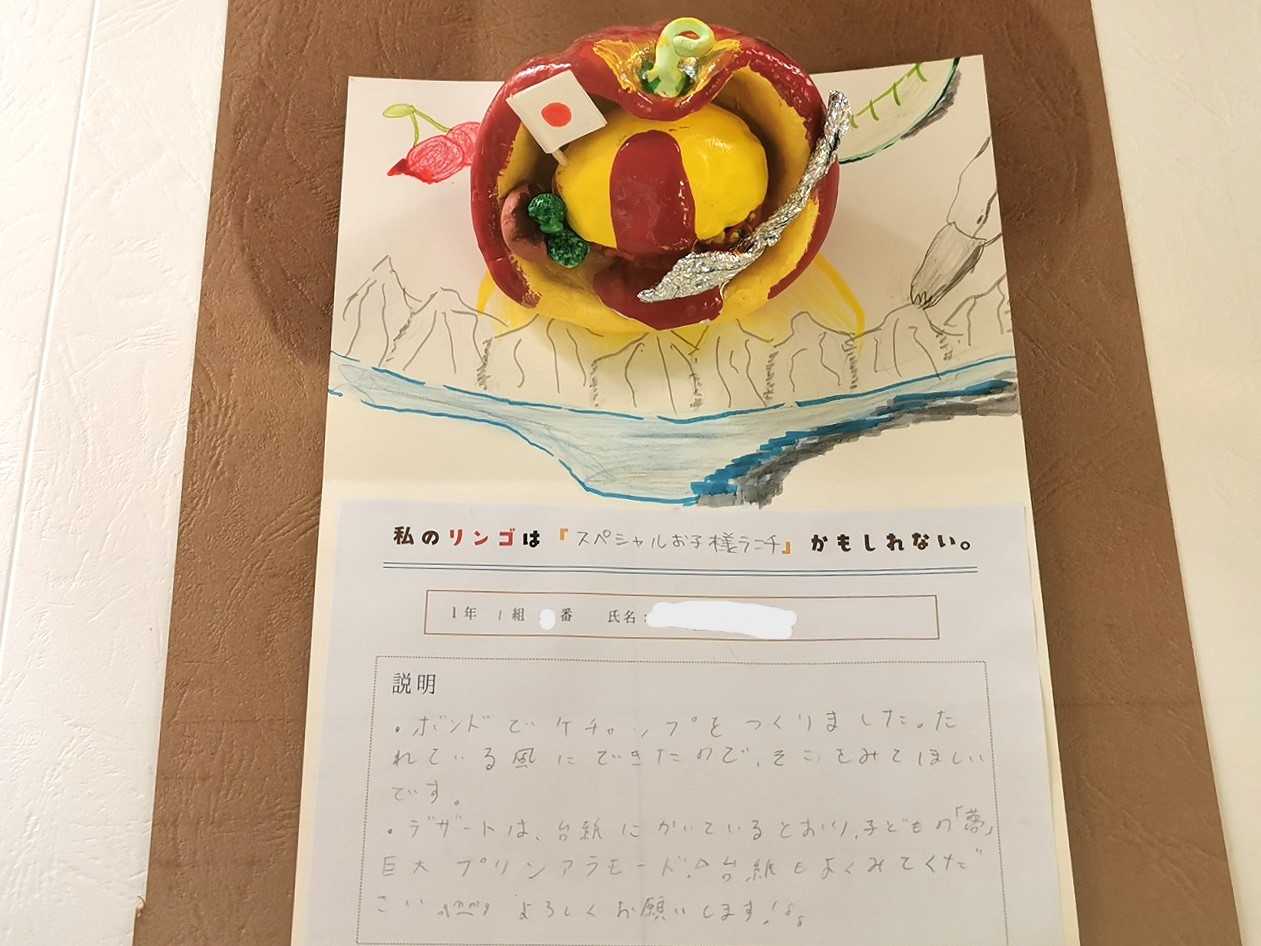 私のリンゴは『スペシャルお子様ランチ』かもしれない。
1年 1組 番 氏名:
説明
・ボンドでケチャップをつくりました。た
れている風にできたので、そこをみてほしい
です。
・デザートは、台紙にかいているとおり、子どもの「夢」
巨大プリンアラモード!台紙もよくみてくだ
さい よろしくお願いします!